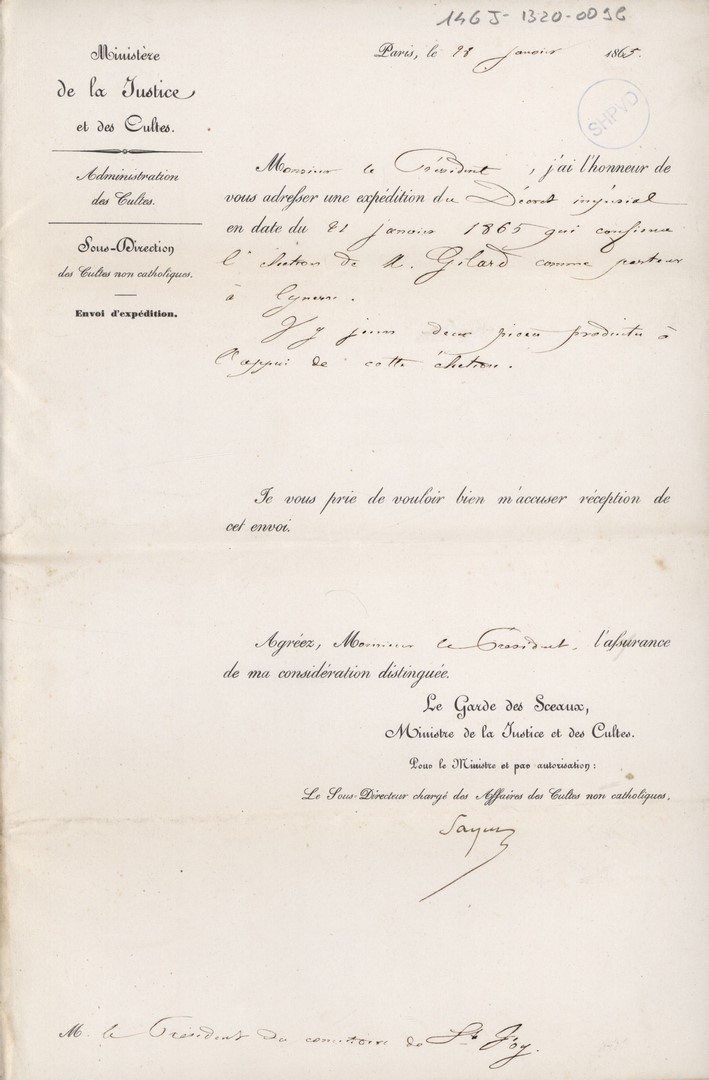 146 J-1320-0098
Ministère
de la Justice
et des Cultes.
Administration
des Cultes.
Sous-Direction
des Cultes non catholiques.
Envoi d'expédition.
Paris, le 28 janvier 1865.
SHPVD
Monsieur le Président, j'ai l'honneur de
vous adresser une expédition du Décret impérial
en date du 21 janvier 1865 qui confirme
l'élection de M. Gilard comme pasteur
à Eynesse.
J'y joins deux pièces produites à
l'appui de cette élection.
Je vous prie de vouloir bien m'accuser réception de
cet envoi.
Agréez, Monsieur le Président, l'assurance
de ma considération distinguée.
Le Garde des Sceaux,
Ministre de la Justice et des Cultes.
Pour le Ministre et par autorisation:
Le Sous-Directeur chargé des Affaires des Cultes non catholiques,
M. le Président du consistoire de Ste Foy.